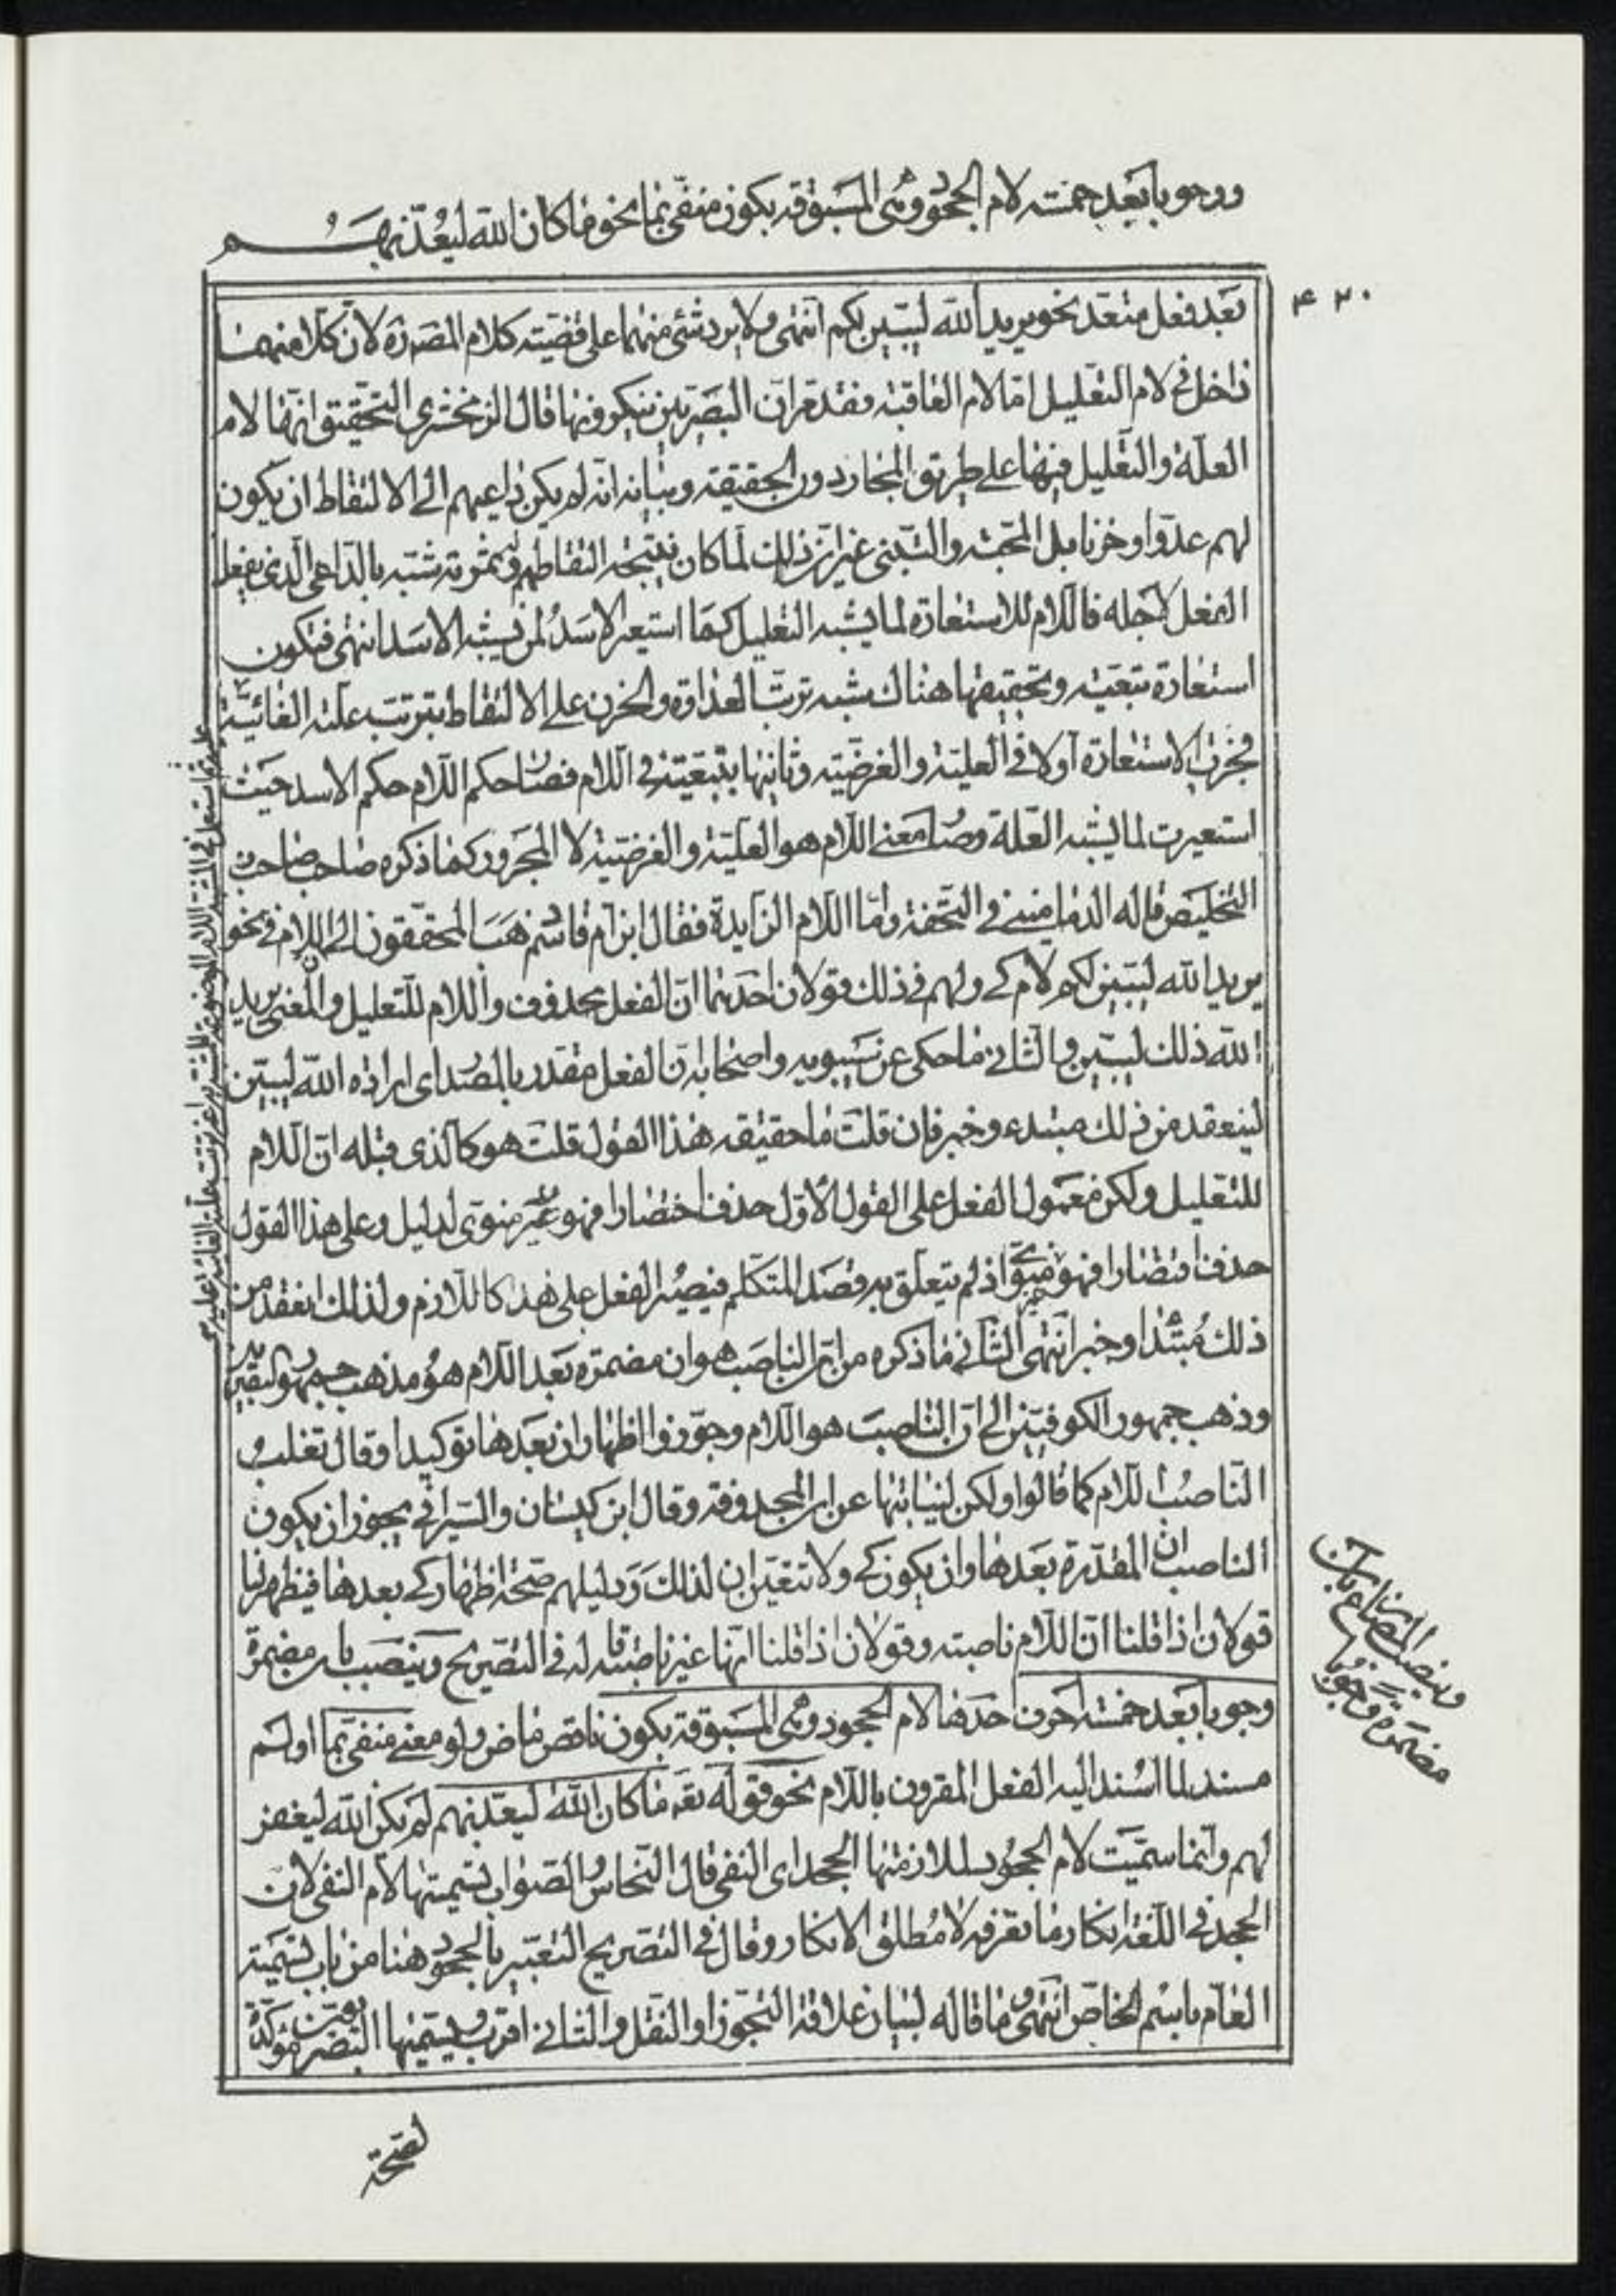 ووجوبا بعد خمسة لام الجحود وهى المسبوقة بكون منفى بما نحو ما كان الله ليعذبهم
۴۲۰
بعد فعل متعد نحو يريد الله ليبين لكم انتهى ولا يرد شئ منهما على قضية كلام المصدرة لان كلا منهما
داخل فى لام التعليل امّا لام العاقبة فقد مر ان البصريين ينكرونها قال الزمخشرى التحقيق انها لام
العلة والتعليل فيها على طريق المجاز دون الحقيقة وبيانه انه لم يكن داعيهم الى الالتقاط ان يكون
لهم عدوا وحزنا بل المحبة والتبنى غير ان ذلك لما كان نتيجة التقاطهم وثمرته شبه بالداعى الذى يفعل
الفعل لاجله فاللام للاستعارة لما يشبه التعليل كما استعير الاسد لمن يشبه الاسد انتهى فتكون
استعارة تبعية وتحقيقها هناك شبه ترتب العداوة والحزن على الالتقاط بترتب علته الغائية
فجرت الاستعارة اولا فى العلية والغرضية وثانيها بتبعيته فى اللام فصار حكم اللام حكم الاسد حيث
استعيرت لما يشبه العلة وصار معنى اللام هو العلية والغرضية لا المجرور كما ذكره صاحب صاحب
التخليص قاله الدمامينى فى التحفة وامّا اللام الزايدة فقال ابن ام قاسم ذهب المحققون الى ان اللام فى نحو
يريد الله ليبين لكم لام كى ولهم فى ذلك قولان احدهما ان الفعل محذوف واللام للتعليل والمعنى يريد
الله ذلك ليبين والثانى ما حكى عن سيبويه واصحابه ان الفعل مقدر بالمصدر اى ارادة الله ليبين
لينعقد من ذلك مبتدء وخبر فان قلت ما حقيقة هذا القول قلت هو كالذى قبله ان اللام
للتعليل ولكن معمول الفعل على القول الاول حذف اختصارا فهو منوى لدليل وعلى هذا القول
حذف اقتصارا فهو غير منوى اذ لم يتعلق به قصد المتكلم فيصير الفعل على هذا كاللازم ولذلك انعقد من
ذلك مبتدا وخبر انتهى الثانى ما ذكره من ان الناصب هو ان مضمرة بعد اللام هو مذهب جمهور البصريين
وذهب جمهور الكوفيين الى ان الناصب هو اللام وجوزوا اظهار ان بعدها توكيدا وقال ثعلب
الناصب اللام كما قالوا ولكن لنيابتها عن ان المحذوفة وقال ابن كيسان والسيرافى يجوز ان يكون
الناصب ان المقدرة بعدها وان يكون كى ولا تتعين ان لذلك ودليلهم صحة اظهار كى بعدها فيظهر لنا
قولان اذا قلنا ان اللام ناصبة وقولان اذا قلنا انها غير ناصبة قاله فى التصريح وينصب بان مضمرة
وجوبا بعد خمسة احرف احدها لام الجحود وهى المسبوقة بكون ناقص ماض ولو معنى منفى بما او لم
مسند لما اسند اليه الفعل المقرون باللام نحو قوله تع ما كان الله ليعذبهم لم يكن الله ليغفر
لهم وانما سميت لام الجحود لملازمتها الجحد اى النفى قال النحاس والصواب تسميتها لام النفى لان
الجحد فى اللغة انكار ما تعرفه لا مطلق الانكار وقال فى التصريح التعبير بالجحود هنا من باب تسمية
العام باسم الخاص انتهى وما قاله لبيان علاقة التجوز او النقل والثانى اقرب ويسميها البصريون مؤكدة
وينصب المضارع بان
مضمرة وجوبا
لصحة